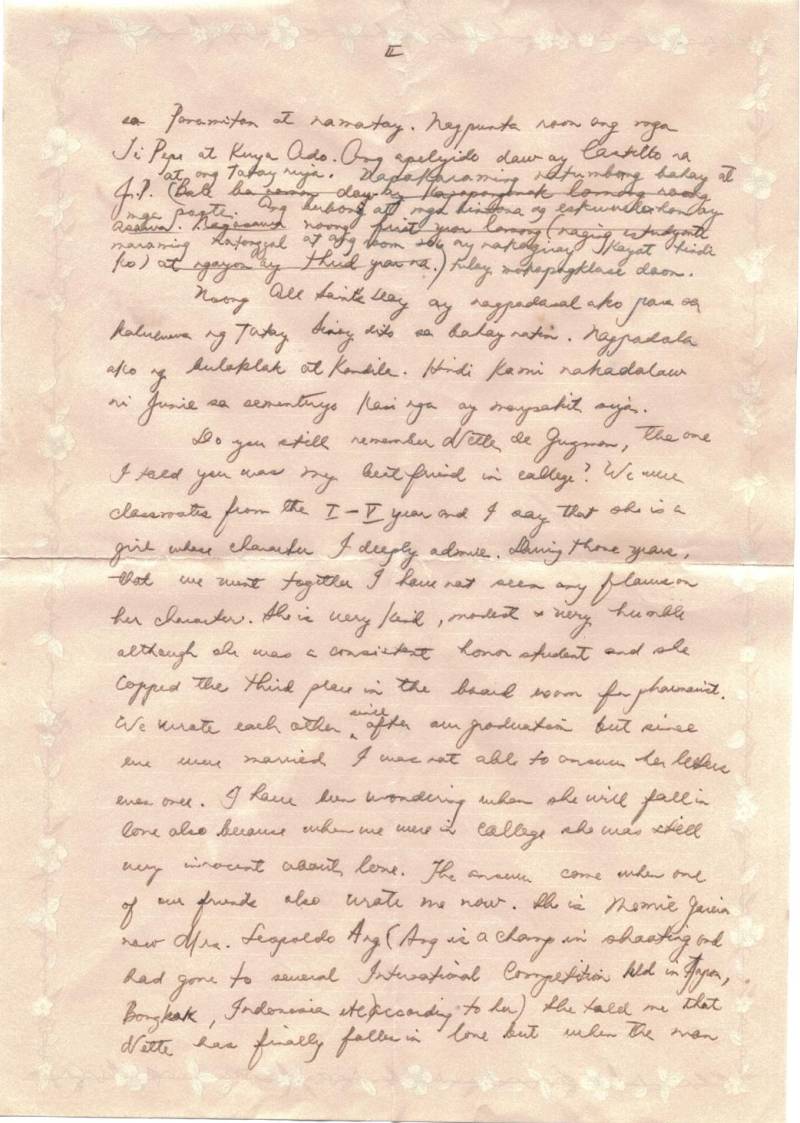 II
sa Paramitan at namatay. Nagpunta roon ang mga
Ti Pepe at Kuya Ado. Ang apelyido daw ay Castillo na
at ang Tatay niya. Napakaraming natumbang bahay at
J.P. (Bale ba
mga poste. Ang bubong at mga bintana ng eskwelahan ay
asawa. noong first year lamang (naging estudyante
maraming natanggal at ang room ko ay nakagiray kayat hindi
ko) at ngayon ay third year na.) tuloy makapagklase doon.
Noong All Saint's Day ay nagpadasal ako para sa
kaluluwa ng Tatay dito sa bahay natin. Nagpadala
ako ng bulaklak at kandila. Hindi kami nakadalaw
ni Junie sa sementeryo kasi nga ay maysakit siya.
Do you still remember Nette de Guzman, the one
I told you was my best friend in college? We were
classmates from the I-V year and I say that she is a
girl whose character I deeply admire. During those years,
that we went together I have not seen any flaws on
her character. She is very kind, modest & very humble
although she was a consistent honor student and she
copped the third place in the board exam for pharmacist.
We wrote each other since after our graduation but since
we were married I was not able to answer her letters
even once. I have been wondering when she will fall in
love also because when we were in college she was still
very innocent about love. The answer came when one
of our friends also wrote me now. She is Memie Garcia
now Mrs. Leopoldo Ang (Ang is a champ in shooting and
had gone to several International Competition held in Japan,
Bangkok, Indonesia etc according to her) She told me that
Nette has finally fallen in love but when the man